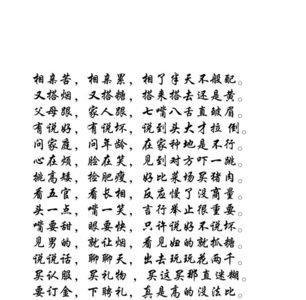 相亲苦，相亲累，相了半天不般配。
又搭烟，又搭糖，搭来搭去还是黄。
父母跟，家人跟，七嘴八舌直皱眉。
有说好，有说坏，说到头大才拉倒。
问家庭，问年龄，在家种地是不行。
心在烦，脸在笑，见到对方吓一跳。
挑高矮，捡肥瘦，好比菜场买猪肉。
看五官，看长相，反应慢了没商量。
头一点，嘴一笑，言行举止很重要。
嘴要甜，眼要快，只许说好不说坏。
见男的，就让烟，看见妞的就抓糖。
说说话，聊聊天，出去玩玩花两千。
买认服，买礼物，买这买那直迷糊。
要订金，下聘礼，真是高的没法比。